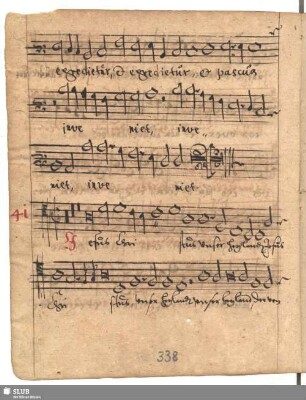 egredietur, & egredietur, & pascua
inve niet, inve
niet, inve niet
41
Jesus Chri stus unser heyland Jesus
Chri stus, unser heyland, unser heyland der von
338
SLUB